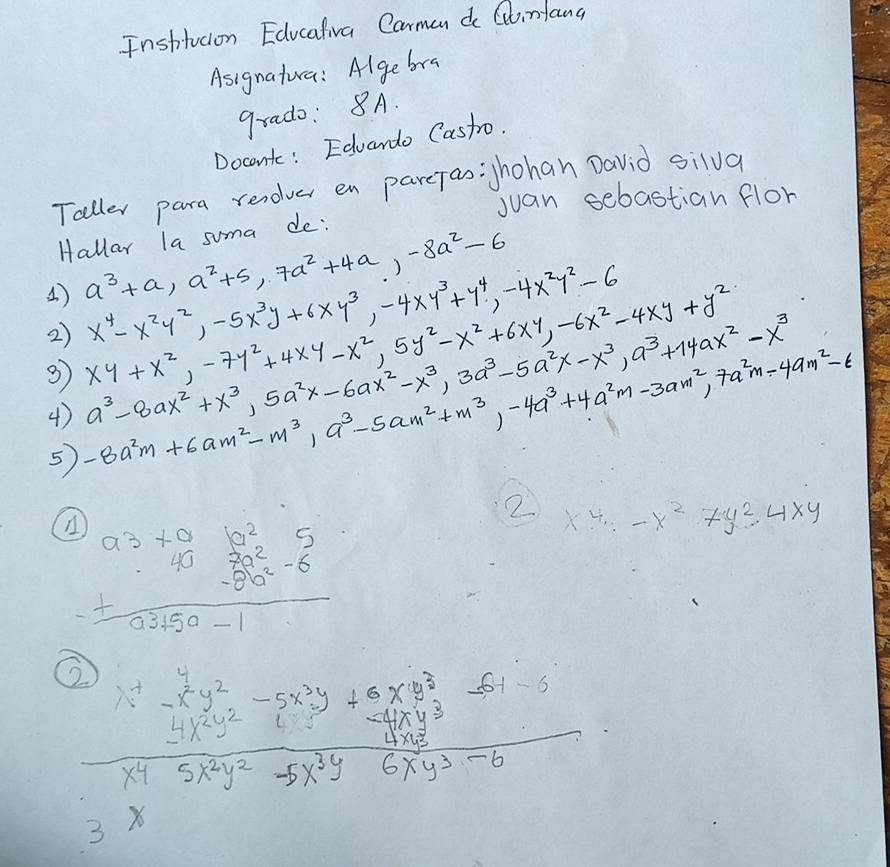 Institucion Educativa Carmen de Quintana
Asignatura: Algebra
grado: 8A.
Docente: Eduardo Castro.
Taller para resolver en parejas: jhohan David silva
juan sebastian flor
Hallar la suma de:
1) a³+a, a²+5, 7a²+4a, -8a²-6
2) x⁴-x²y², -5x³y+6xy³, -4xy³+y⁴, -4x²y²-6
3) xy+x², -7y²+4xy-x², 5y²-x²+6xy, -6x²-4xy+y²
4) a³-8ax²+x³, 5a²x-6ax²-x³, 3a³-5a²x-x³, a³+14ax²-x³
5) -8a²m+6am²-m³, a³-5am²+m³, -4a³+4a²m-3am², 7a²m-4am²-6
① a3 +a 1a² 5
4a 7a² -6
-8a²
+
a3+5a -1
② x4 -x² 7y² 4xy
② x4 -x²y² -5x³y +6xy³ -6
-4x²y² -4xy³
4xy3
x4 5x²y² -5x³y 6xy3 -6
3 x